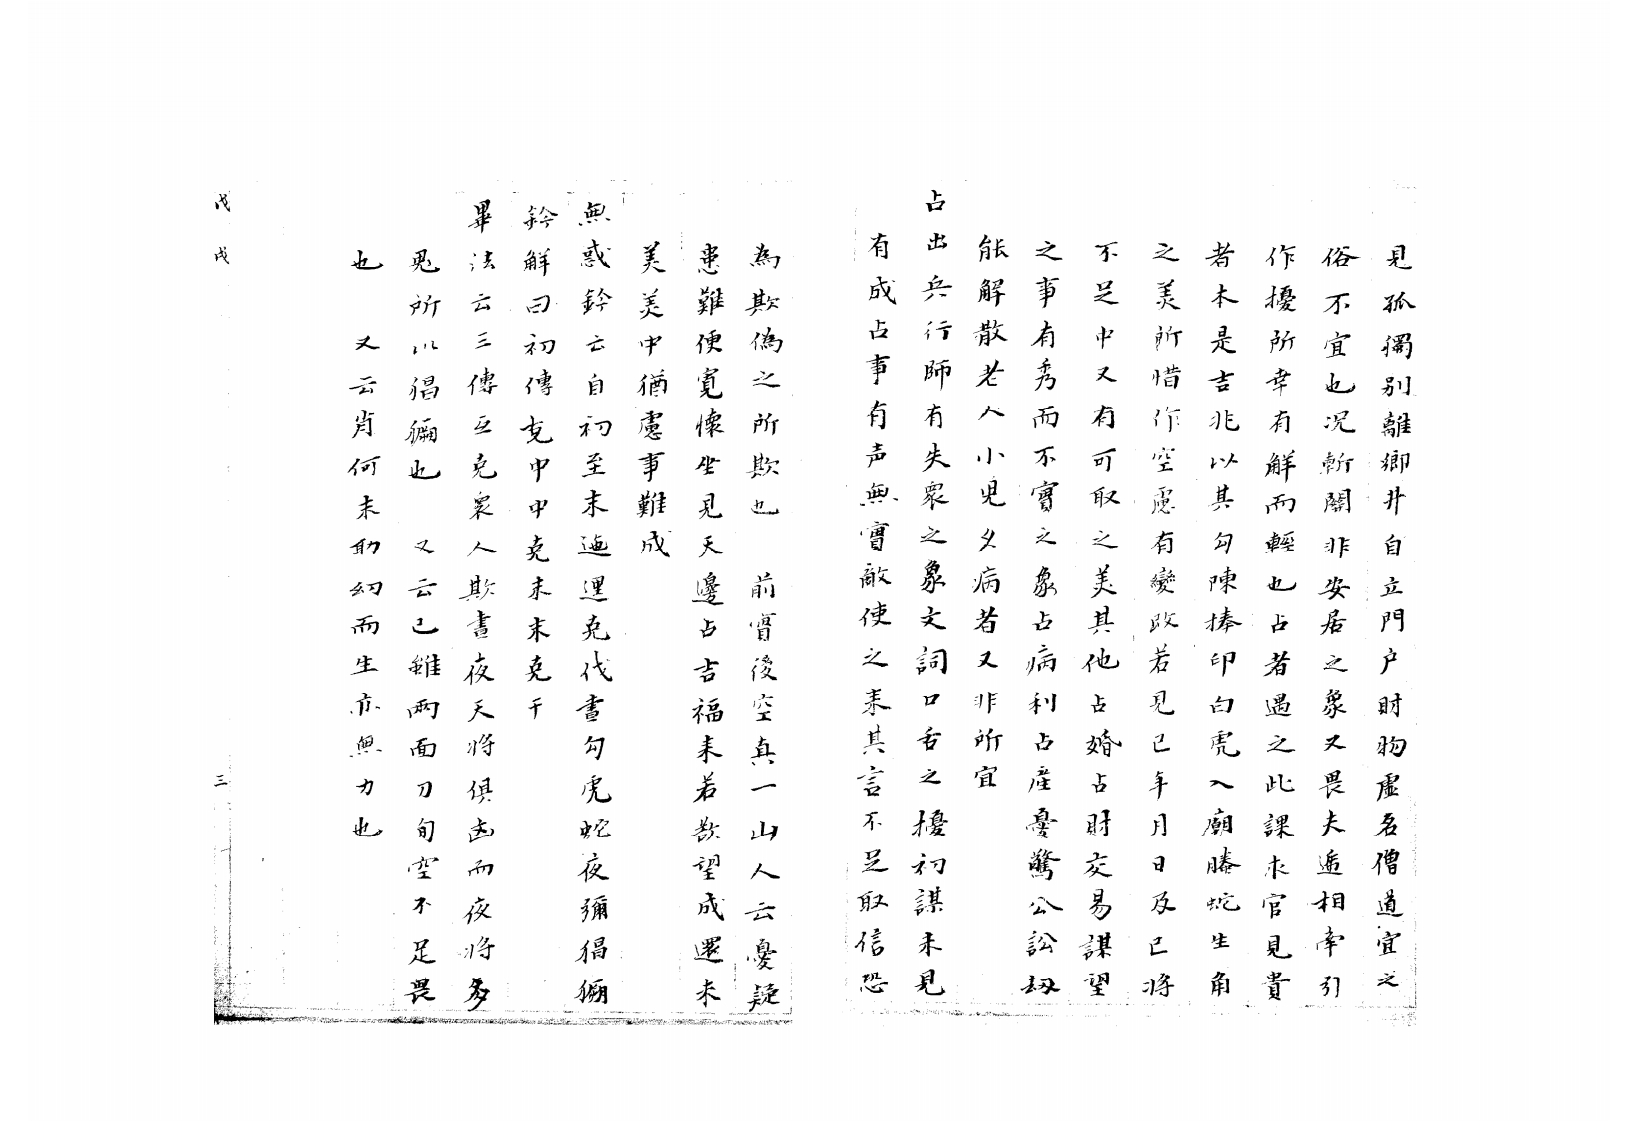 見孤獨別離鄉井自立門户財物虛名僧道宜之
俗不宜也况斬關非安居之象又畏夫遁相牽引
作擾所幸有解而輕也占者遇之此課求官見貴
者本是吉兆以其勾陳捧印白虎入廟螣蛇生角
之美所惜作空慮有變改若見已年月日及已將
不足中又有可取之美其他占婚占財交易謀望
之事有秀而不實之象占病利占産憂驚公訟
能解散老人小兒久病者又非所宜
占出兵行師有失衆之象文詞口舌之擾初謀未見
有成占事有声無實敵使之来其言不足取信恐
為欺偽之所欺也　前實後空真一山人云憂疑
患難便寬懷坐見天邊占吉福来若歎望成還未
美美中猶慮事難成
無惑鈐云自初至末迤邐克伐晝勾虎蛇夜彌猖獗
鈐解曰初傳克中中克末末克干
畢法云三傳互克衆人欺晝夜天將俱凶而夜將多
鬼所以猖獗也　又云已雖兩面刀旬空不足畏
也　又云胷何未助幼而生亦無力也
戊　戌　三